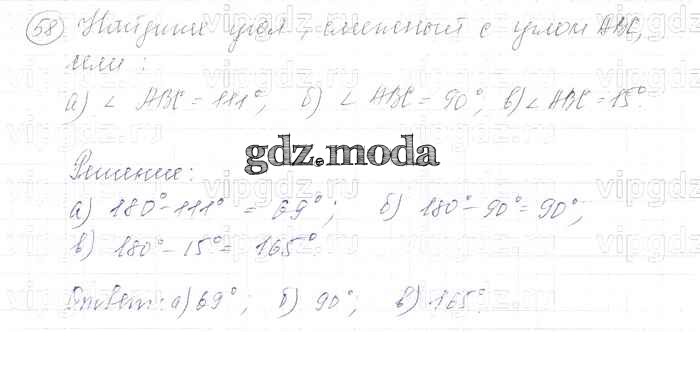 58) Найдите угол, смежный с углом ABC,
если:
а) ∠ ABC = 111°, б) ∠ ABC = 90°, в) ∠ ABC = 15°.
gdz.moda
Решение:
а) 180° - 111° = 69°; б) 180° - 90° = 90°;
в) 180° - 15° = 165°.
Ответ: а) 69°; б) 90°; в) 165°.